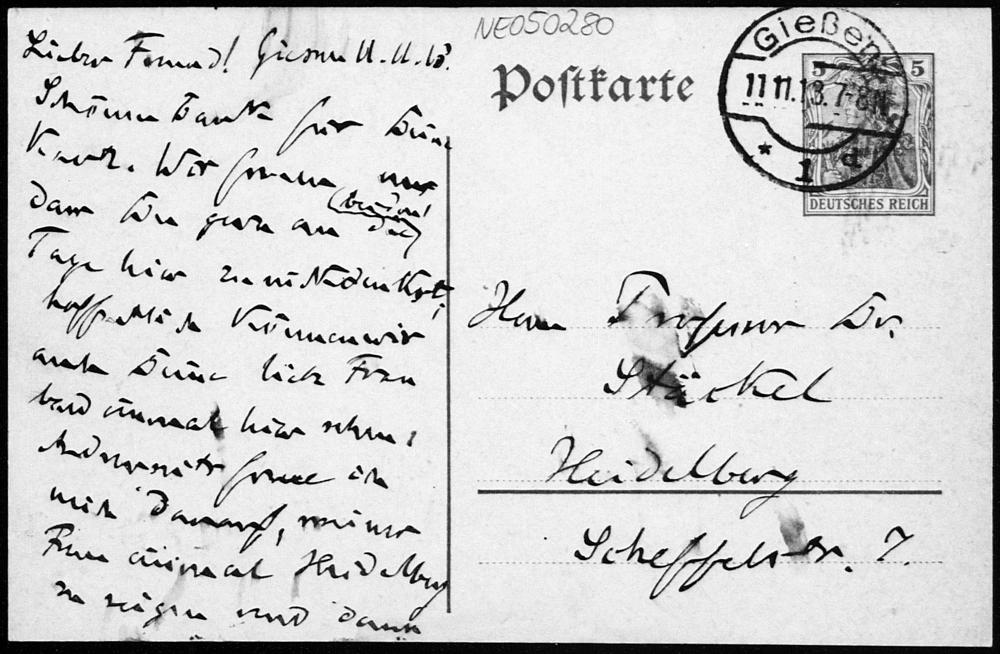 NE050280
Postkarte
Gießen
11.11.13.7-8N.
* 1 d
5 5
DEUTSCHES REICH
Lieber Freund! Giessen 11.11.13.
Schönen Dank für Deine
Karte. Wir freuen uns
dass Du gern an
Tage hier
hoffentlich können wir
auch Deine liebe Frau
bald einmal hier sehen;
Andererseits freue ich
mich darauf, meiner
Frau einmal Heidelberg
zu zeigen und dann
Herrn Professor Dr.
Stäckel
Heidelberg
Scheffelstr. 7.